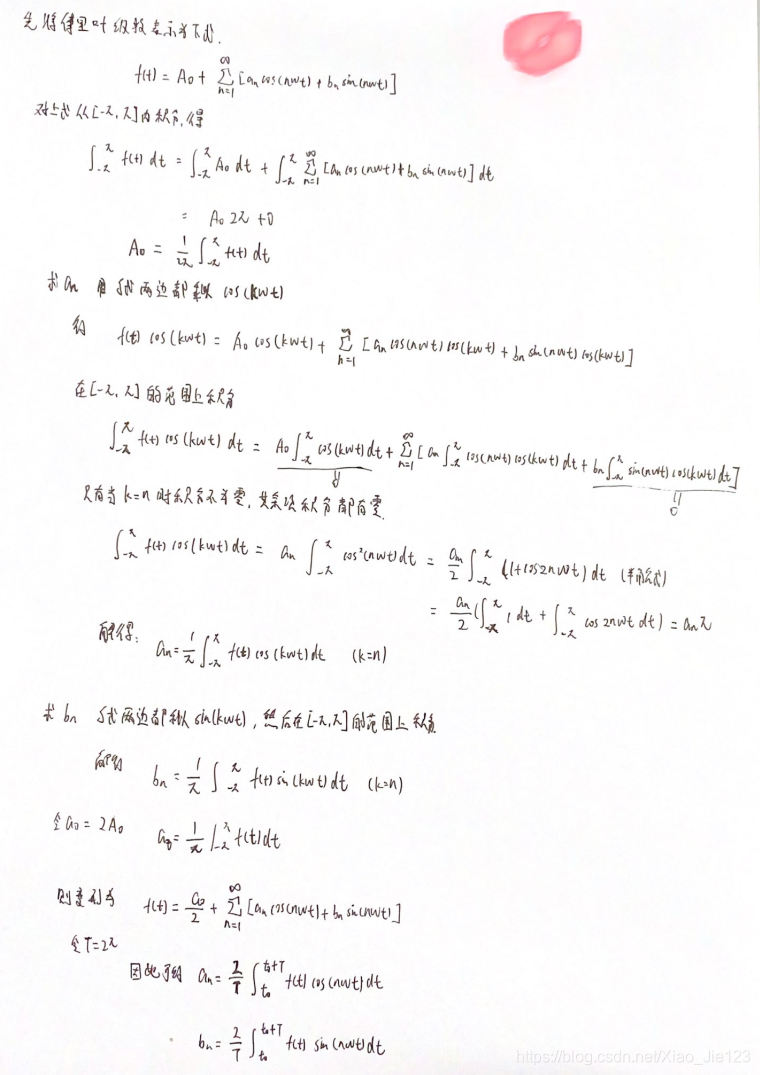 先将傅里叶级数表示为下式.
f(t) = A₀ + ∑_{n=1}^{∞} [aₙ cos(nwt) + bₙ sin(nwt)]
对上式从[-π, π]内积分,得
∫_{-π}^{π} f(t) dt = ∫_{-π}^{π} A₀ dt + ∫_{-π}^{π} ∑_{n=1}^{∞} [aₙ cos(nwt) + bₙ sin(nwt)] dt
= A₀ 2π + 0
A₀ = 1/2π ∫_{-π}^{π} f(t) dt
求aₙ 用 f式两边都乘以 cos(kwt)
得 f(t) cos(kwt) = A₀ cos(kwt) + ∑_{n=1}^{∞} [aₙ cos(nwt) cos(kwt) + bₙ sin(nwt) cos(kwt)]
在[-π, π]的范围上积分
∫_{-π}^{π} f(t) cos(kwt) dt = A₀ ∫_{-π}^{π} cos(kwt) dt + ∑_{n=1}^{∞} [aₙ ∫_{-π}^{π} cos(nwt) cos(kwt) dt + bₙ ∫_{-π}^{π} sin(nwt) cos(kwt) dt]
0 0
只有当k=n时积分不为零,其余项积分都为零.
∫_{-π}^{π} f(t) cos(kwt) dt = aₙ ∫_{-π}^{π} cos²(nwt) dt = aₙ/2 ∫_{-π}^{π} (1+cos2nwt) dt (半角公式)
= aₙ/2 (∫_{-π}^{π} 1 dt + ∫_{-π}^{π} cos 2nwt dt) = aₙ π
解得: aₙ = 1/π ∫_{-π}^{π} f(t) cos(kwt) dt (k=n)
求 bₙ f式两边都乘以 sin(kwt), 然后在[-π, π]的范围上积分
解得 bₙ = 1/π ∫_{-π}^{π} f(t) sin(kwt) dt (k=n)
令a₀ = 2A₀ a₀ = 1/π ∫_{-π}^{π} f(t) dt
则 f(t) = a₀/2 + ∑_{n=1}^{∞} [aₙ cos(nwt) + bₙ sin(nwt)]
令T=2π
因此可得 aₙ = 2/T ∫_{t₀}^{t₀+T} f(t) cos(nwt) dt
bₙ = 2/T ∫_{t₀}^{t₀+T} f(t) sin(nwt) dt
https://blog.csdn.net/Xiao_Jie123